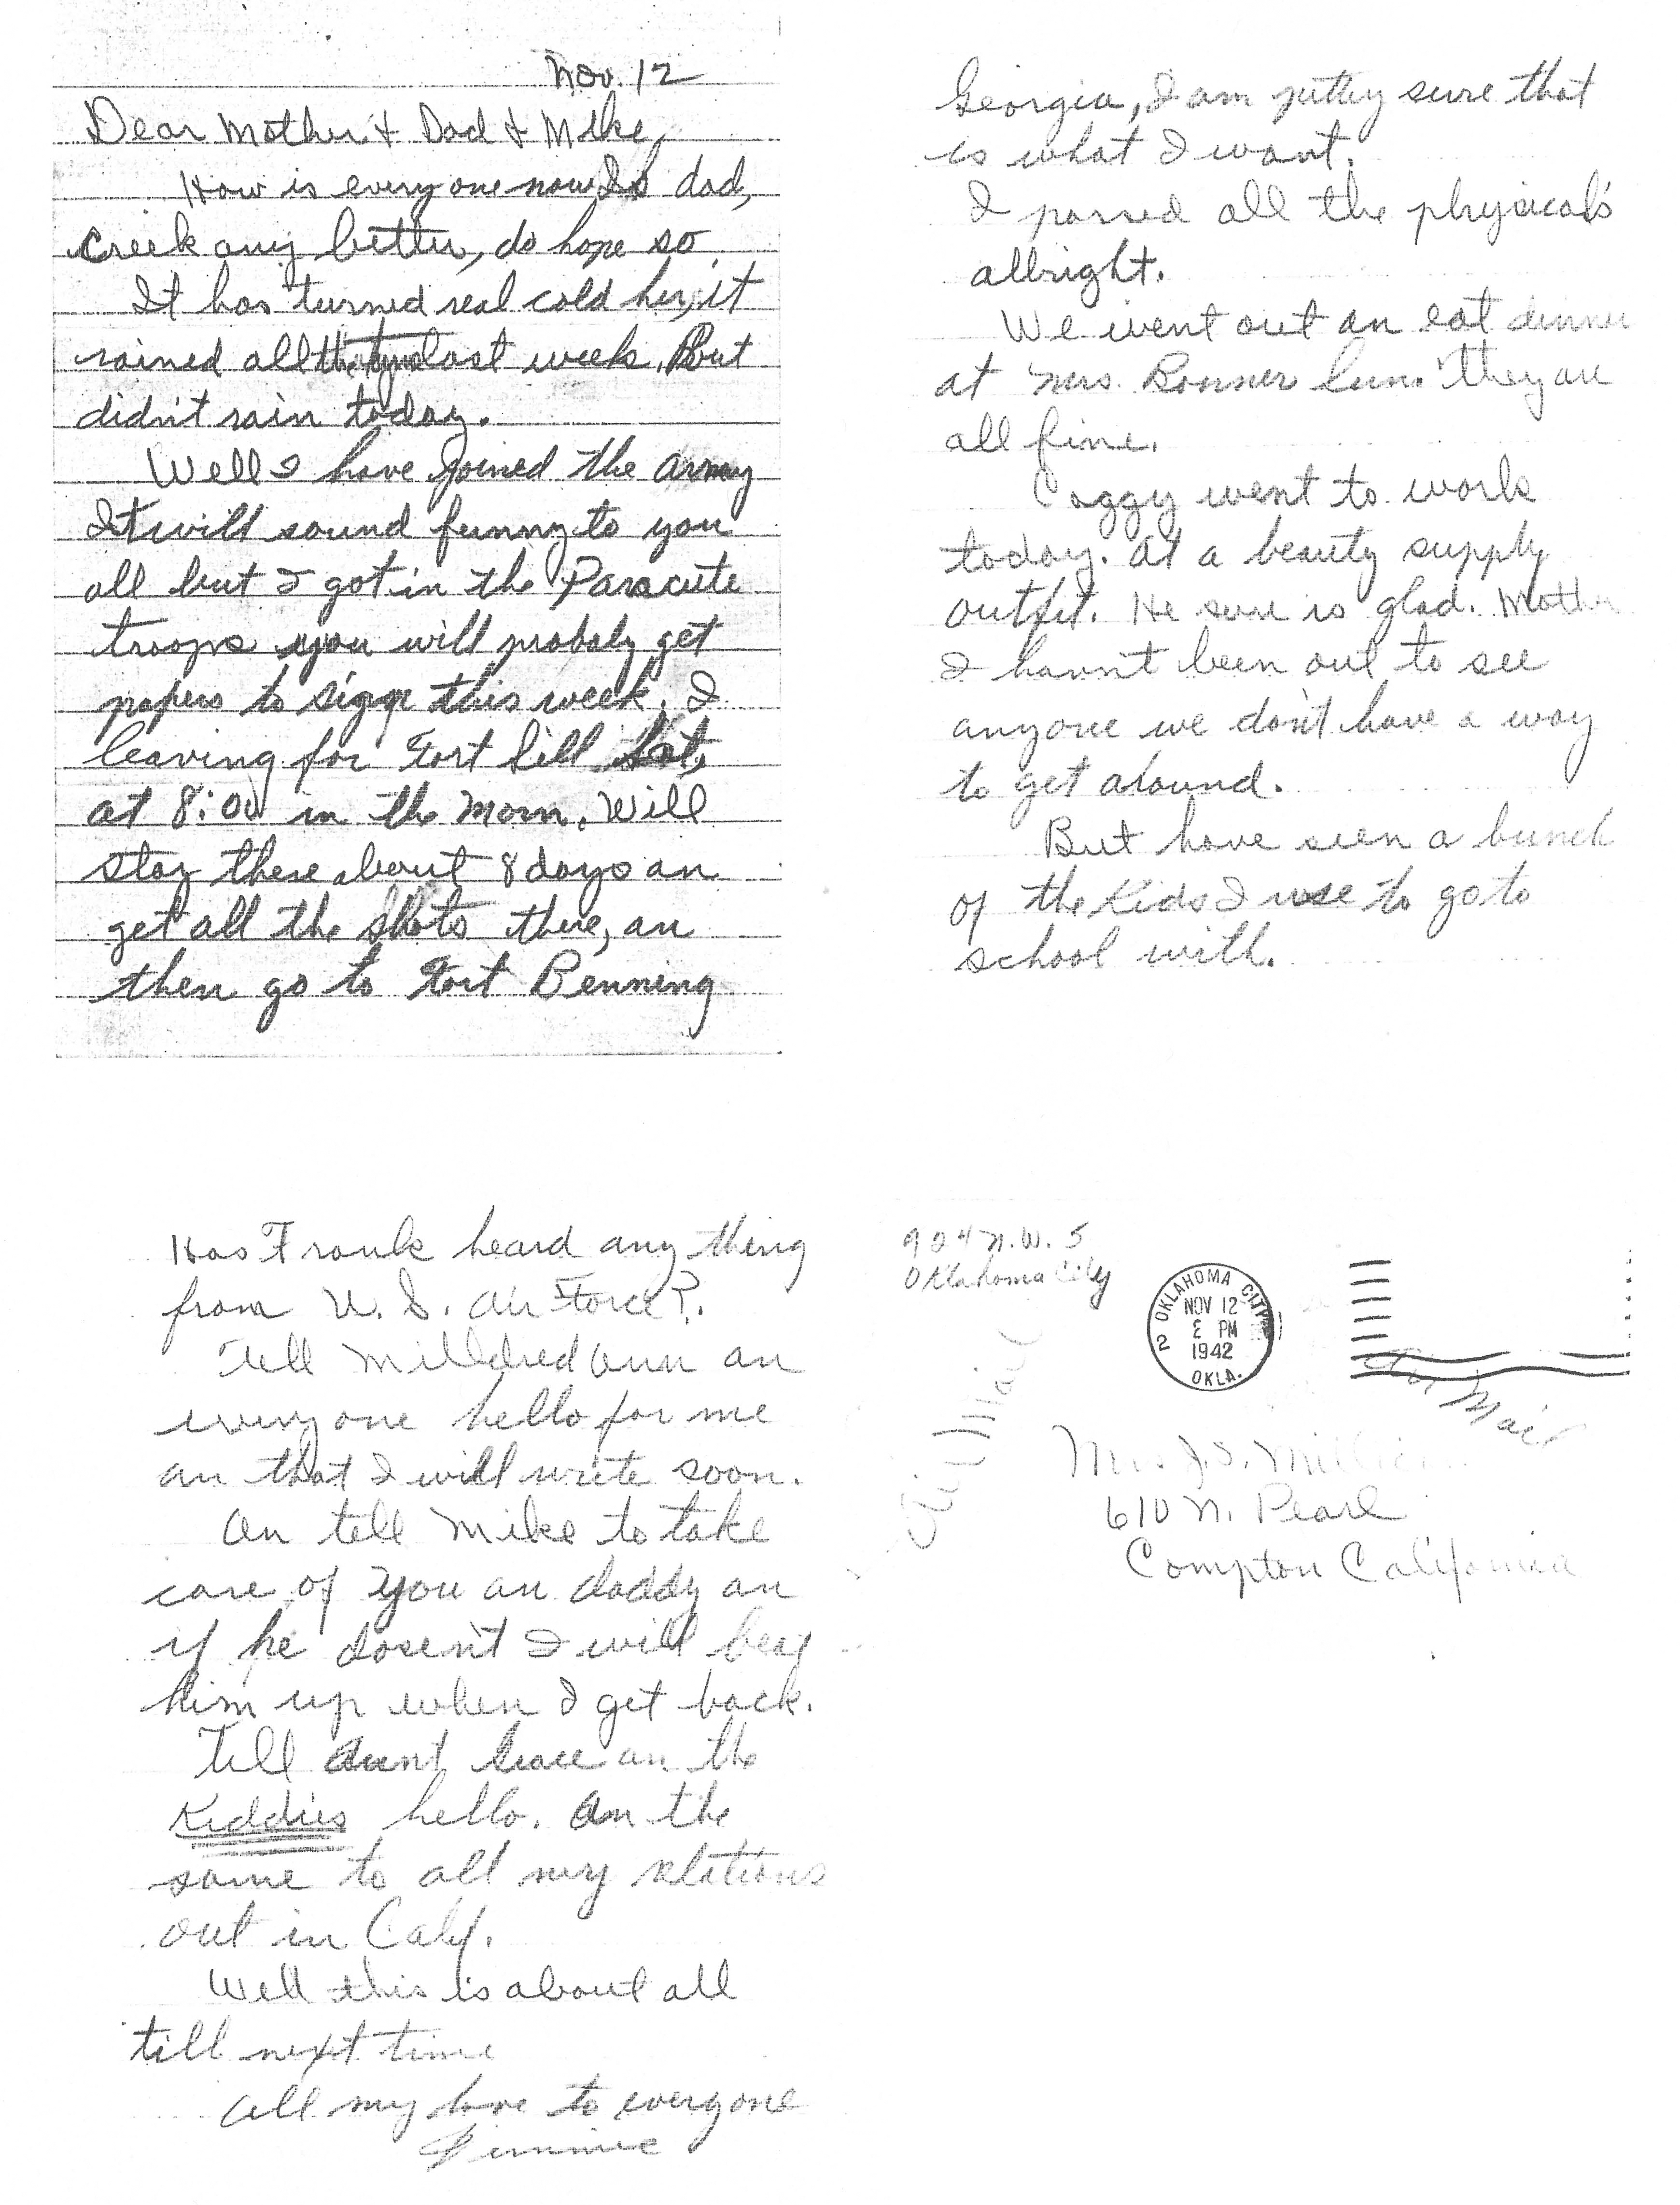 Nov. 12
Dear Mother & Dad & Mike,
How is everyone now, Is dad,
creek any better, do hope so.
It has turned real cold her, it
rained all the last week. But
didn't rain today.
Well I have joined the army
It will sound funny to you
all but I got in the Paracute
troops you will probaly get
papers to sign this week. I
leaving for Fort Sill Sat,
at 8:00 in the morn. Will
stay there about 8 days an
get all the shots there, an
then go to Fort Benning
Georgia, I am pretty sure that
is what I want.
I passed all the physical's
allright.
We went out an eat dinner
at Mrs. Bonner Sun. They are
all fine.
went to work
today. At a beauty supply
outfit. He sure is glad. Mother
I havn't been out to see
anyone we don't have a way
to get around.
But have seen a bunch
of the kids I use to go to
school with.
Has Frank heard any thing
from U. S. Air Force?.
Tell Milldred Ann an
everyone hello for me
an that I will write soon.
An tell Mike to take
care of you an daddy an
if he dosen't I will beat
him up when I get back.
Tell Aunt an the
Kiddies hello. An the
same to all my relations
out in Calif.
Well this is about all
till next time
All my love to everyone
Jimmie
924 N.W. 5
Oklahoma City
OKLAHOMA CITY 2
NOV 12
2 PM
1942
OKLA.
Air Mail
Air Mail
J.S.
610 N. Pearl
Compton California